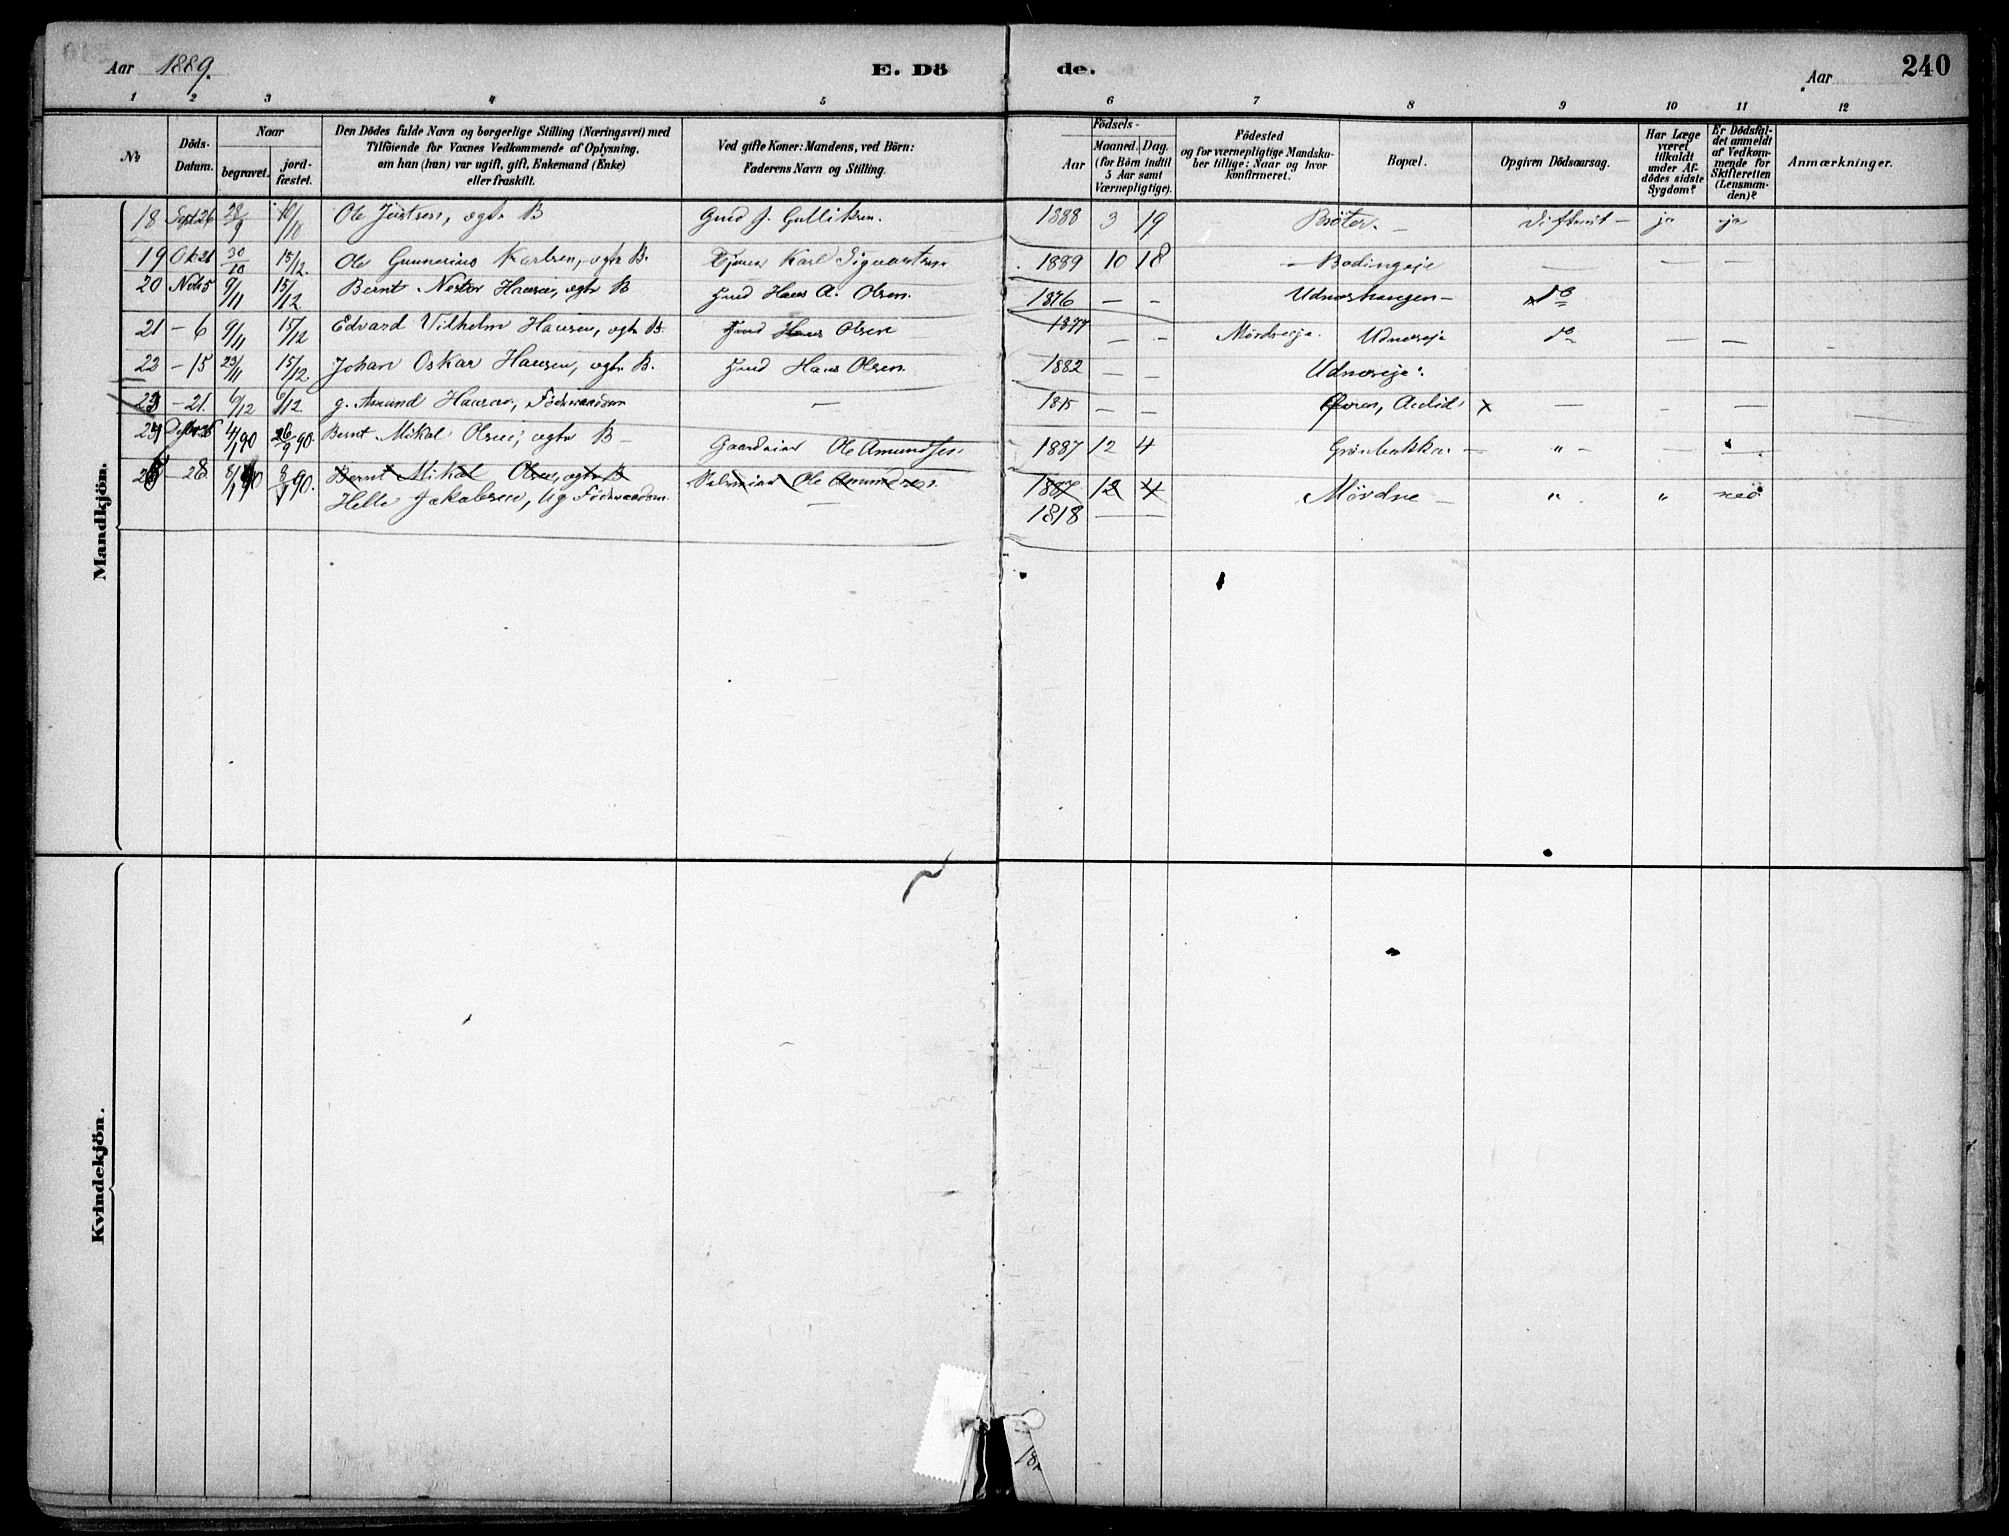 Aar 1889.
E. Dö
de.
Aar
240
1 2 3 4 5 6 7 8 9 10 11 12
№
Döds-
Datum.
Naar
begravet.
jord-
fæstet.
Den Dödes fulde Navn og borgerlige Stilling (Næringsvei) med
Tilföiende for Voxnes Vedkommende af Oplysning,
om han (hun) var ugift, gift, Enkemand (Enke)
eller fraskilt.
Ved gifte Koner: Mandens, ved Börn:
Faderens Navn og Stilling.
Födsels-
Aar
Maaned. Dag.
(for Börn indtil
5 Aar samt
Værnepligtige).
Födested
og for værnepligtige Mandska-
ber tillige: Naar og hvor
konfirmeret.
Bopæl.
Opgiven Dödsaarsag.
Har Læge
været
tilkaldt
under Af-
dödes sidste
Sygdom?
Er Dödsfal-
det anmeldt
af Vedkom-
mende for
Skifteretten
(Lensman-
den)?
Anmærkninger.
Mandkjön.
18 Sept 26 28/9 10/10 Ole Justsen, ægte B Gmd J. Gulliksen. 1888 3 19 Bröter. — ja ja
19 Ok 21 30/10 15/12. Ole Gunnerius Karlsen, ægte B. Karl 1889 10 18 — — —
20 Nov 5 9/11 15/12 Bernt Nestor Hansen, ægte B Hans A. Olsen. 1876 — — Udnæshaugen — do
21 — 6 9/11 15/12 Edvard Vilhelm Hansen, ægte B. Hans Olsen 1877 — — Udnæseje do — —
22 — 15 23/11 15/12. Johan Oskar Hansen, ægte B. Hans Olsen. 1882 — — Udnæseje.
23 — 21. 6/12 6/12. g. Amund Hansen, Föderaadsm — 1815 — — x — — —
24 4/1 90 26/9 90. Bernt Mikal Olsen, ægte B — Gaardeier Ole Amundsen. 1887 12 4 — " — —
25 — 28. 8/1 90 8/1 90. Bernt Mikal Olsen, ægte B Ole Amundsen. 1887 12 4
Helle Jakobsen, Ug Föderaadsm. — 1818 — — Mördre — " " nei
Kvindekjön.